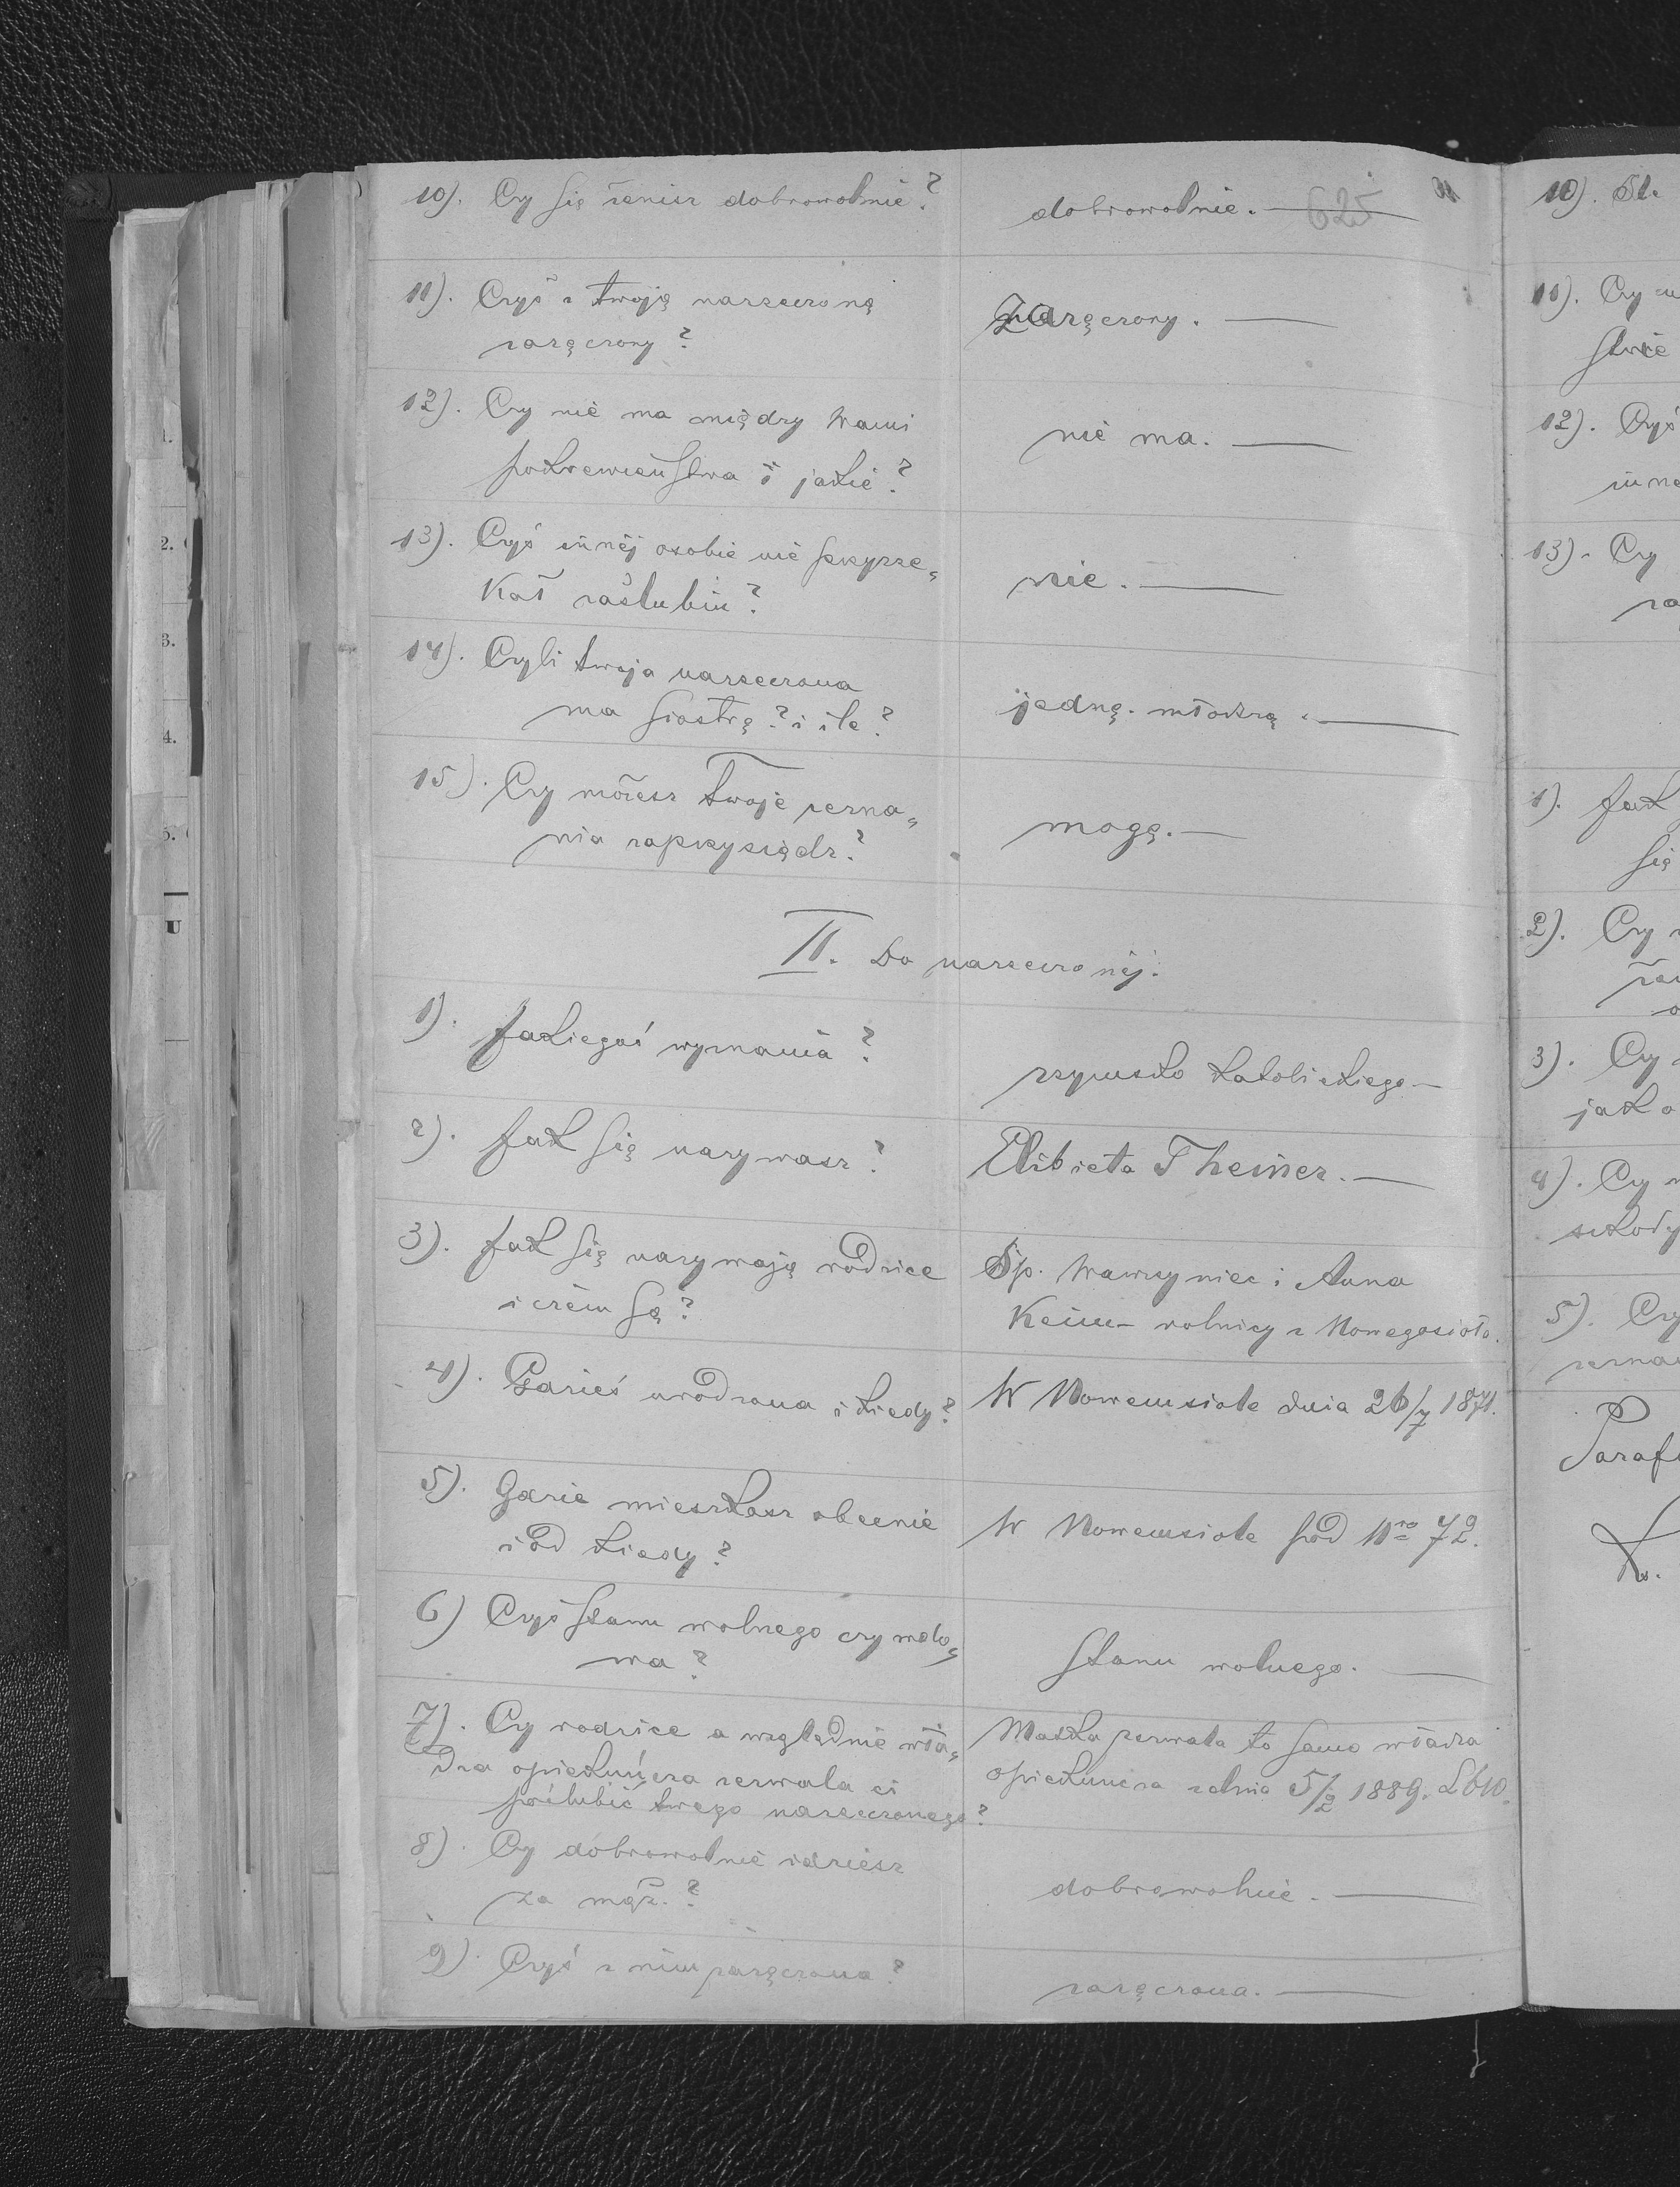 625
10). Czy się żenisz dobrowolnie?
dobrowolnie.
11). Czyś z twoją narzeczoną
zaręczony?
zaręczony.
12). Czy nie ma między Wami
pokrewieństwa i jakie?
nie ma.
13). Czyś innéj osobie nie przyrze„
kał zaślubin?
nie.
14). Czyli twoja narzeczona
ma siostrę? i ile?
jedną. młodszą.
15). Czy możesz Twoje zezna„
nia zaprzysiądz?
mogę.
II. Do narzeczonéj.
1). Jakiegoś wyznania?
rzymsko katolickiego
2). Jak się nazywasz?
Elżbieta Theiner.
3). Jak się nazywają rodzice
i czém są?
Śp. Wawrzyniec i Anna
Keim- rolnicy z Nowegosioła.
4). Gdzieś urodzona i kiedy?
W Nowemsiole dnia 26/7 1871.
5). Gdzie mieszkasz obecnie
i od kiedy?
W Nowemsiole pod Nro 72.
6) Czyś stanu wolnego czy wdo„
wa?
Stanu wolnego.
7). Czy rodzice a względnie wła„
dza opiekuńcza zezwala ci
poślubić twego narzeczonego?
Matka zezwala to samo władza
opiekuncza z dnia 5/2 1889. L 610.
8) Czy dobrowolnie idziesz
za mąż.?
dobrowolnie.
9). Czyś z nim zaręczona?
zaręczona.
10).
11). Czy
12). Czyś
13). Czy
1). Jak
się
2). Czy
3). Czy
jak o
4). Czy
5). Czy
Parafi